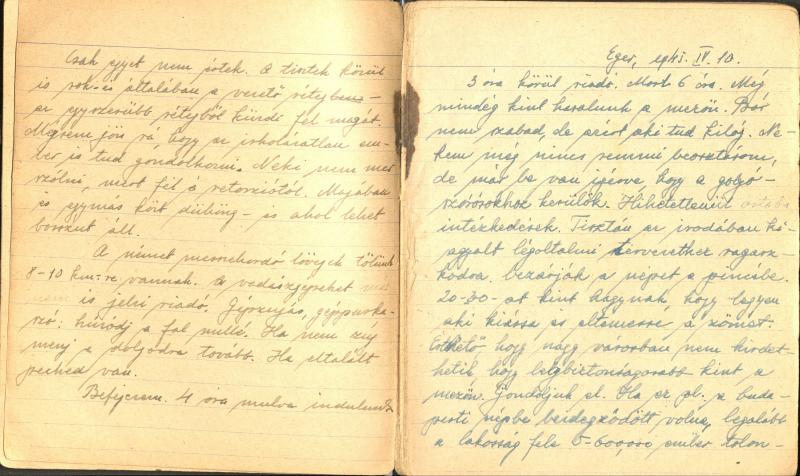 Csak egyet nem értek. A tisztek közül
is sok és általában a vezető rétegben
az egyszerűbb rétegből küzdi fel magát.
Mégsem jön rá, hogy az iskolázatlan em-
ber is tud gondolkozni. Neki nem mer
szólni, mert fél a retorziótól. Magában
és egymás közt dühöng és ahol lehet
bosszút áll.
A német messzehordó lövegek tőlünk
8-10 km-re vannak. A vadászgépeket már
nem is jelzi riadó. Gépzúgás, géppuska-
szó: húzódj a fal mellé. Ha nem
menj a dolgodra tovább. Ha eltalált
peched van.
Befejezem. 4 óra múlva indulunk
Eger, 1945. IV. 10.
3 óra körül riadó. Most 6 óra. Még
mindég kint hasalunk a mezőn. Bár
nem szabad, de azért aki tud kilóg. Ne-
kem még nincs semmi beosztásom,
de már be van ígérve hogy a golyó-
szórósokhoz kerülök. Hihetetlenül ostoba
intézkedések. Tisztán az irodában ki-
agyalt légoltalmi tervezethez ragasz-
kodva bezárják a népet a pincébe.
20-30-at kint hagynak hogy legyen
aki kiássa és eltemesse a többit.
Érthető hogy nagy városban nem hirdet-
hetik hogy legbiztonságosabb kint a
mezőn. Gondoljuk el. Ha ez pl. a buda-
pesti népbe beidegződött volna, legalább
a lakosság fele 5-600,000 ember tolon-